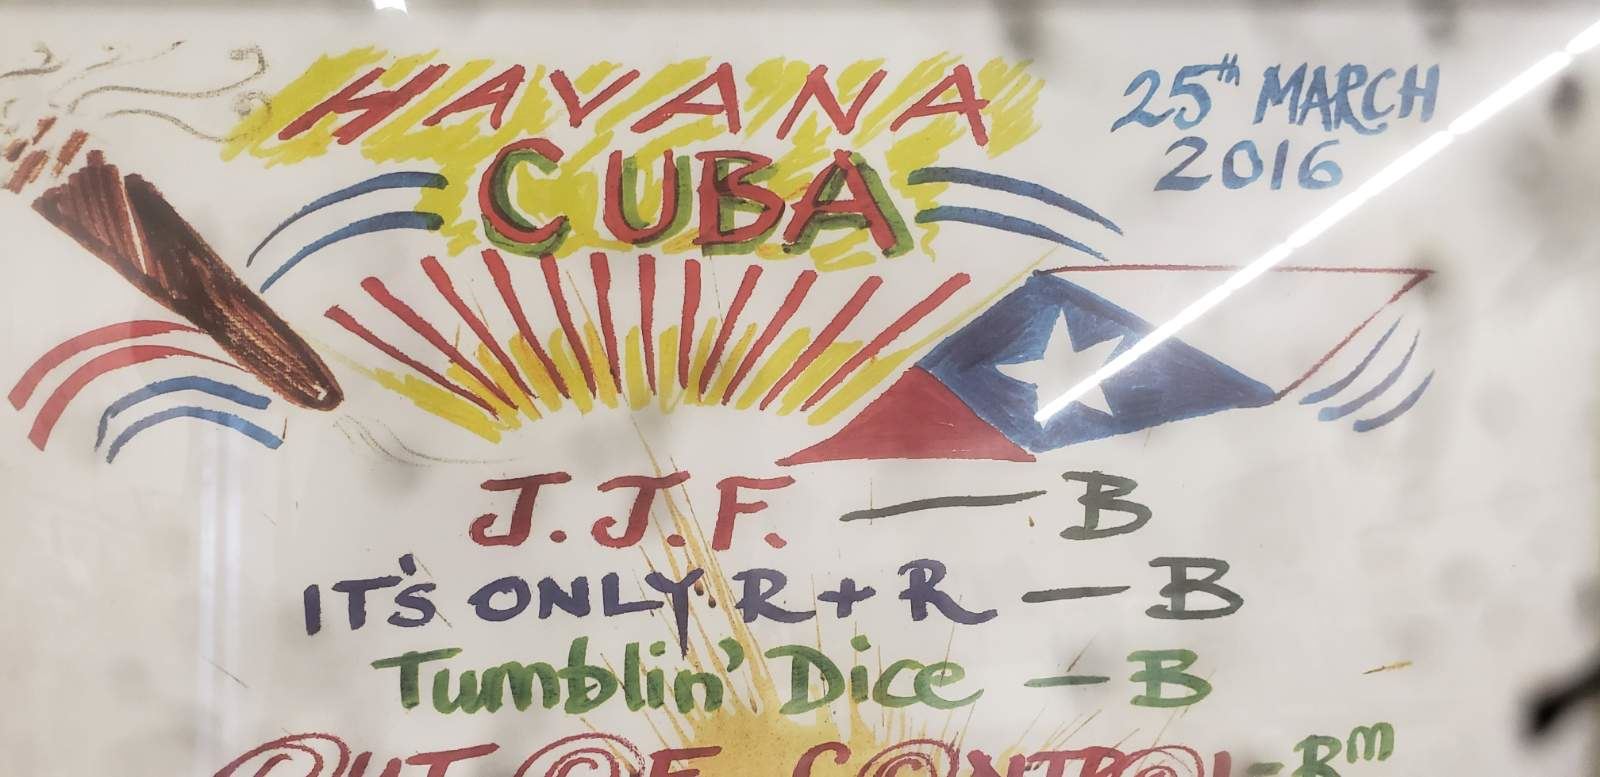 HAVANA
CUBA
25th MARCH
2016
J.J.F. — B
IT'S ONLY R + R — B
Tumblin' Dice — B
OUT OF CONTROL - Bm